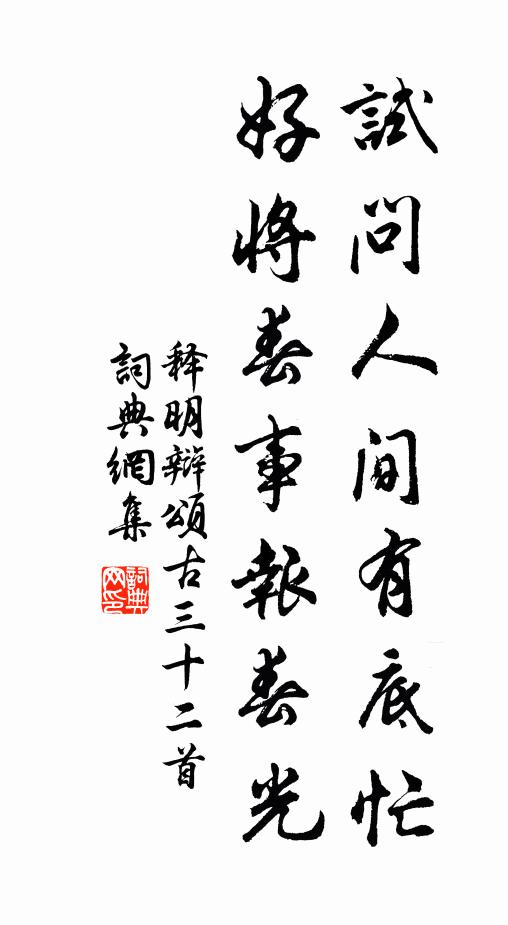 試問人间有底忙
好將春事報春光
释明辯頌古三十二首
詞典網集
詞典网印